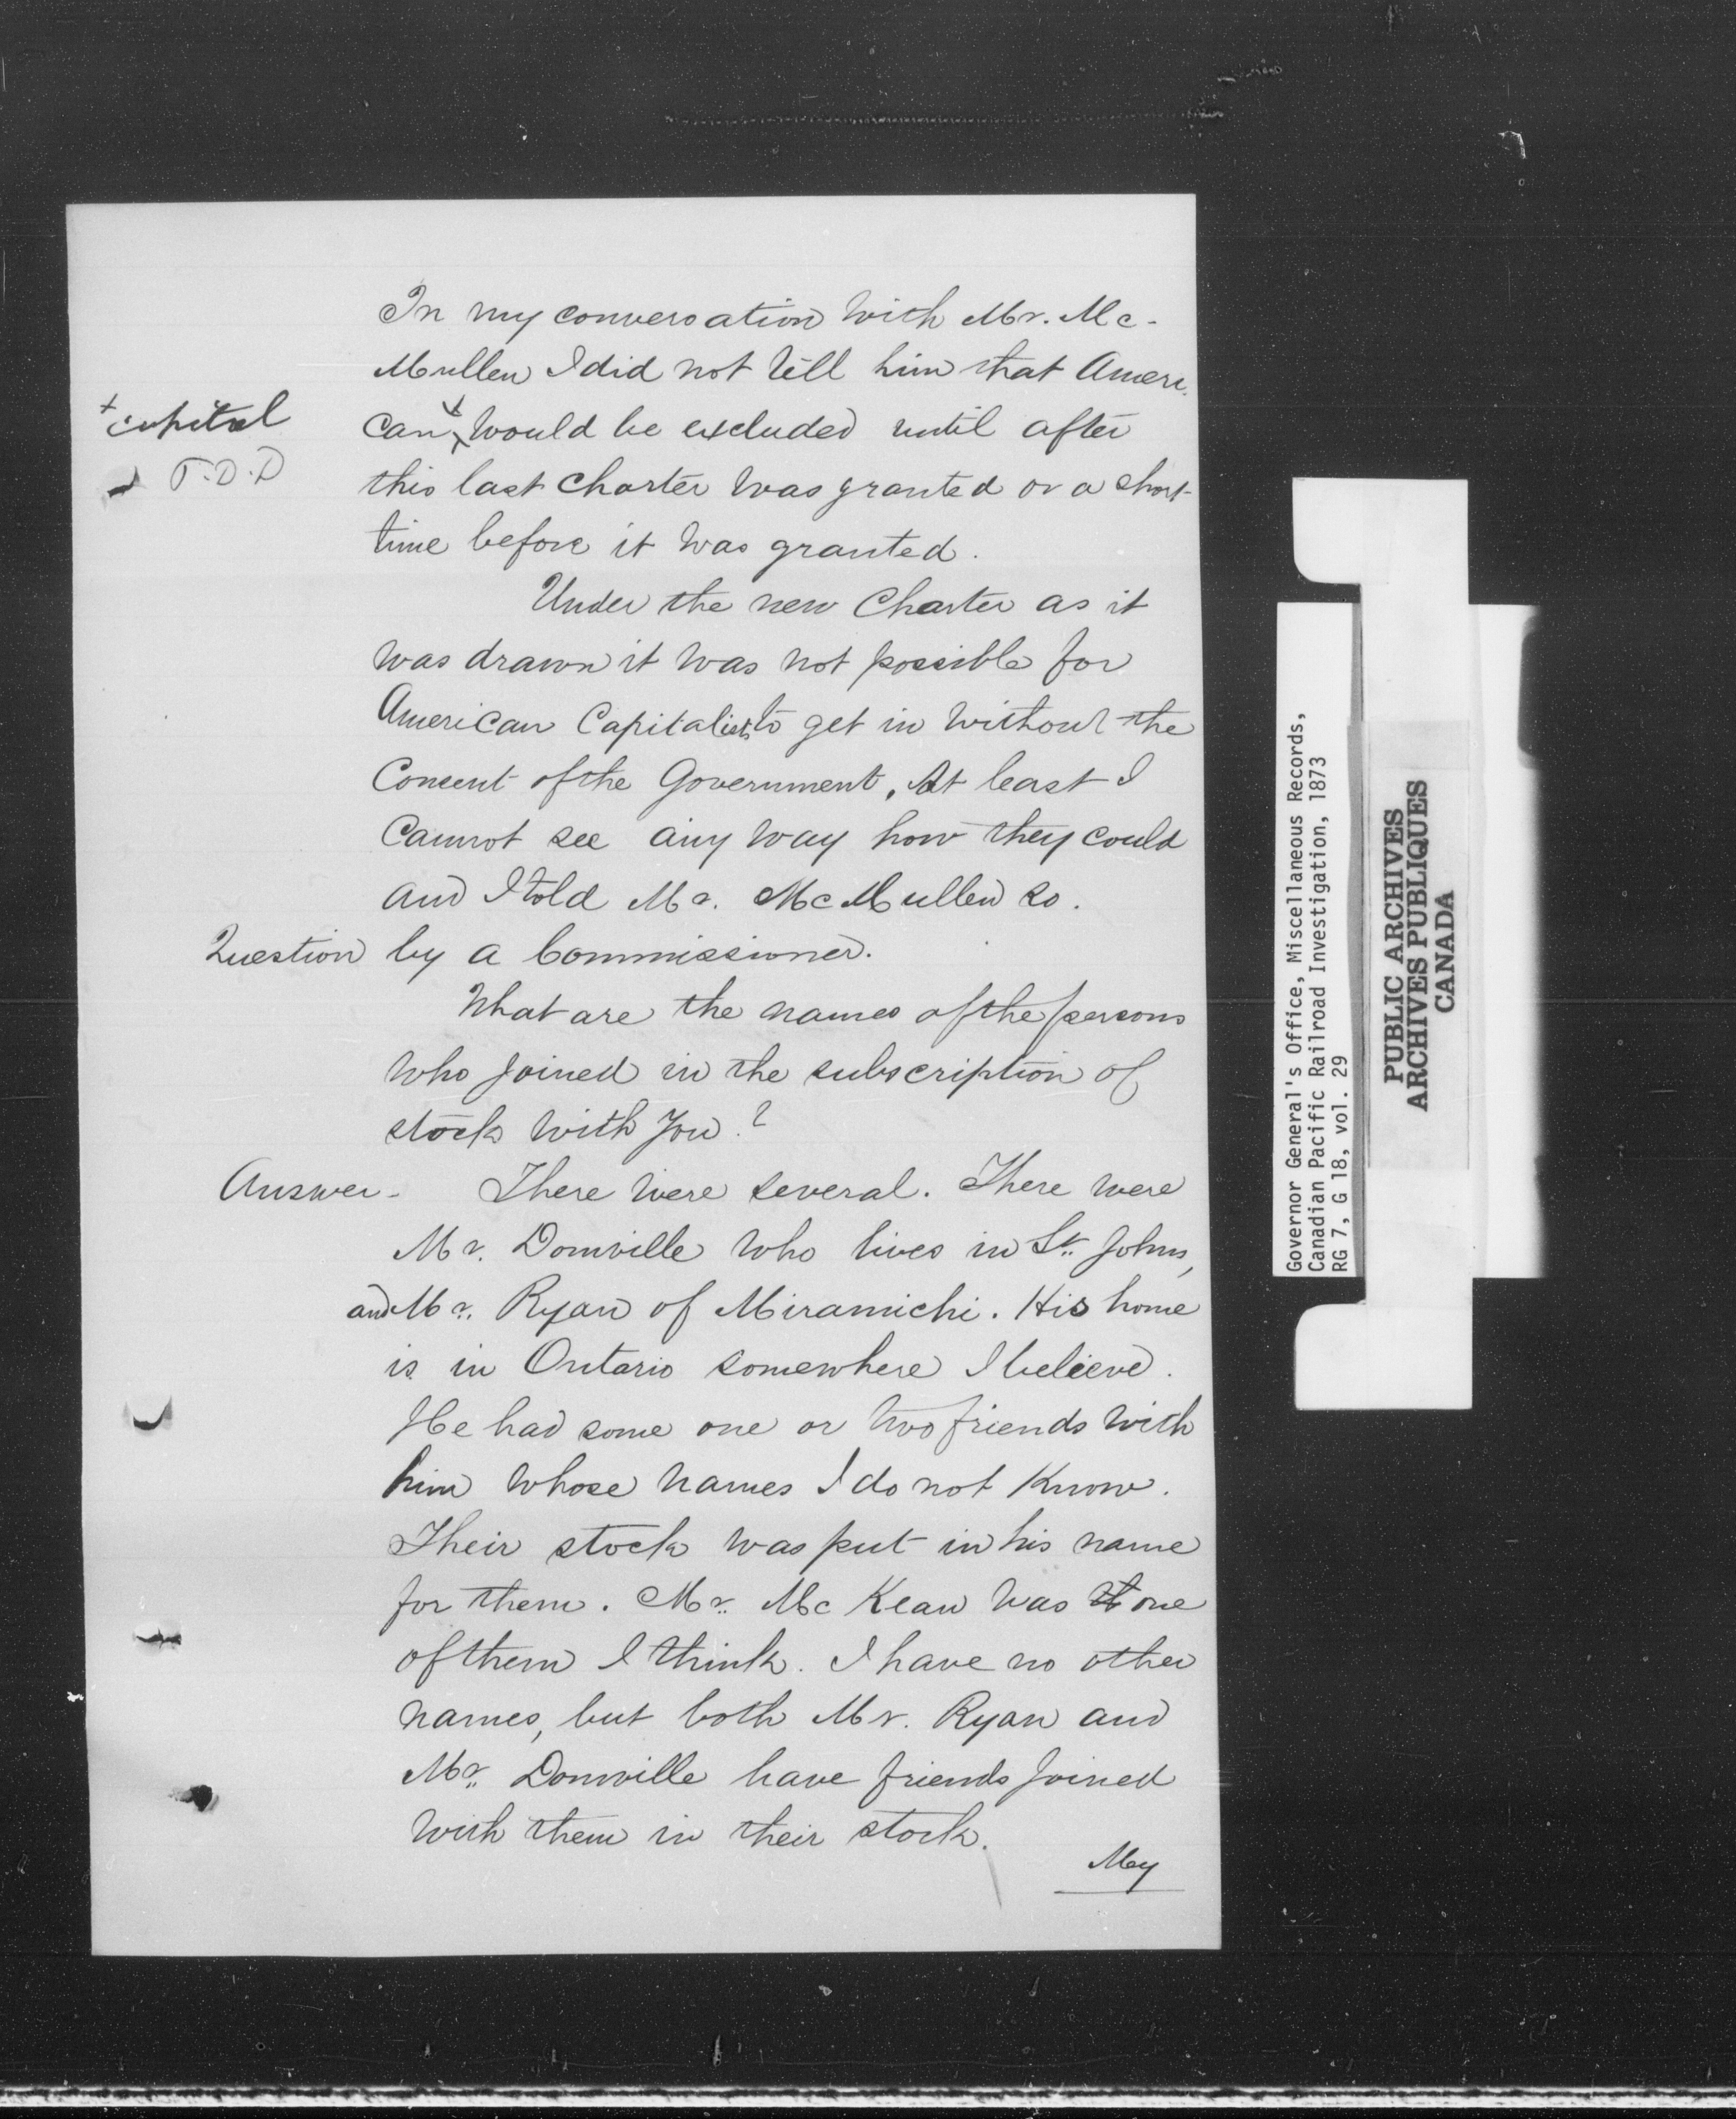 In my conversation with Mr. Mc-
Mullen I did not tell him that Ameri-
+ capital
can would be excluded until after
T.D.D
this last Charter was granted or a short
time before it was granted.
Under the new Charter as it
was drawn it was not possible for
American Capitalists to get in without the
Consent of the Government, At least I
Cannot see any way how they could
and I told Mr. McMullen so.
Question by a Commissioner.
What are the names of the persons
who joined in the subscription of
stock with you?
Answer- There were several. There were
Mr. Domville who lives in St. Johns,
and Mr. Ryan of Miramichi. His home
is in Ontario somewhere I believe.
He had some one or two friends with
him whose names I do not know.
Their stock was put in his name
for them. Mr. Mc Kean was one
of them I think. I have no other
names, but both Mr. Ryan and
Mr. Domville have friends joined
with them in their stock.
My
Governor General's Office, Miscellaneous Records,
Canadian Pacific Railroad Investigation, 1873
RG 7, G 18, vol. 29
PUBLIC ARCHIVES
ARCHIVES PUBLIQUES
CANADA